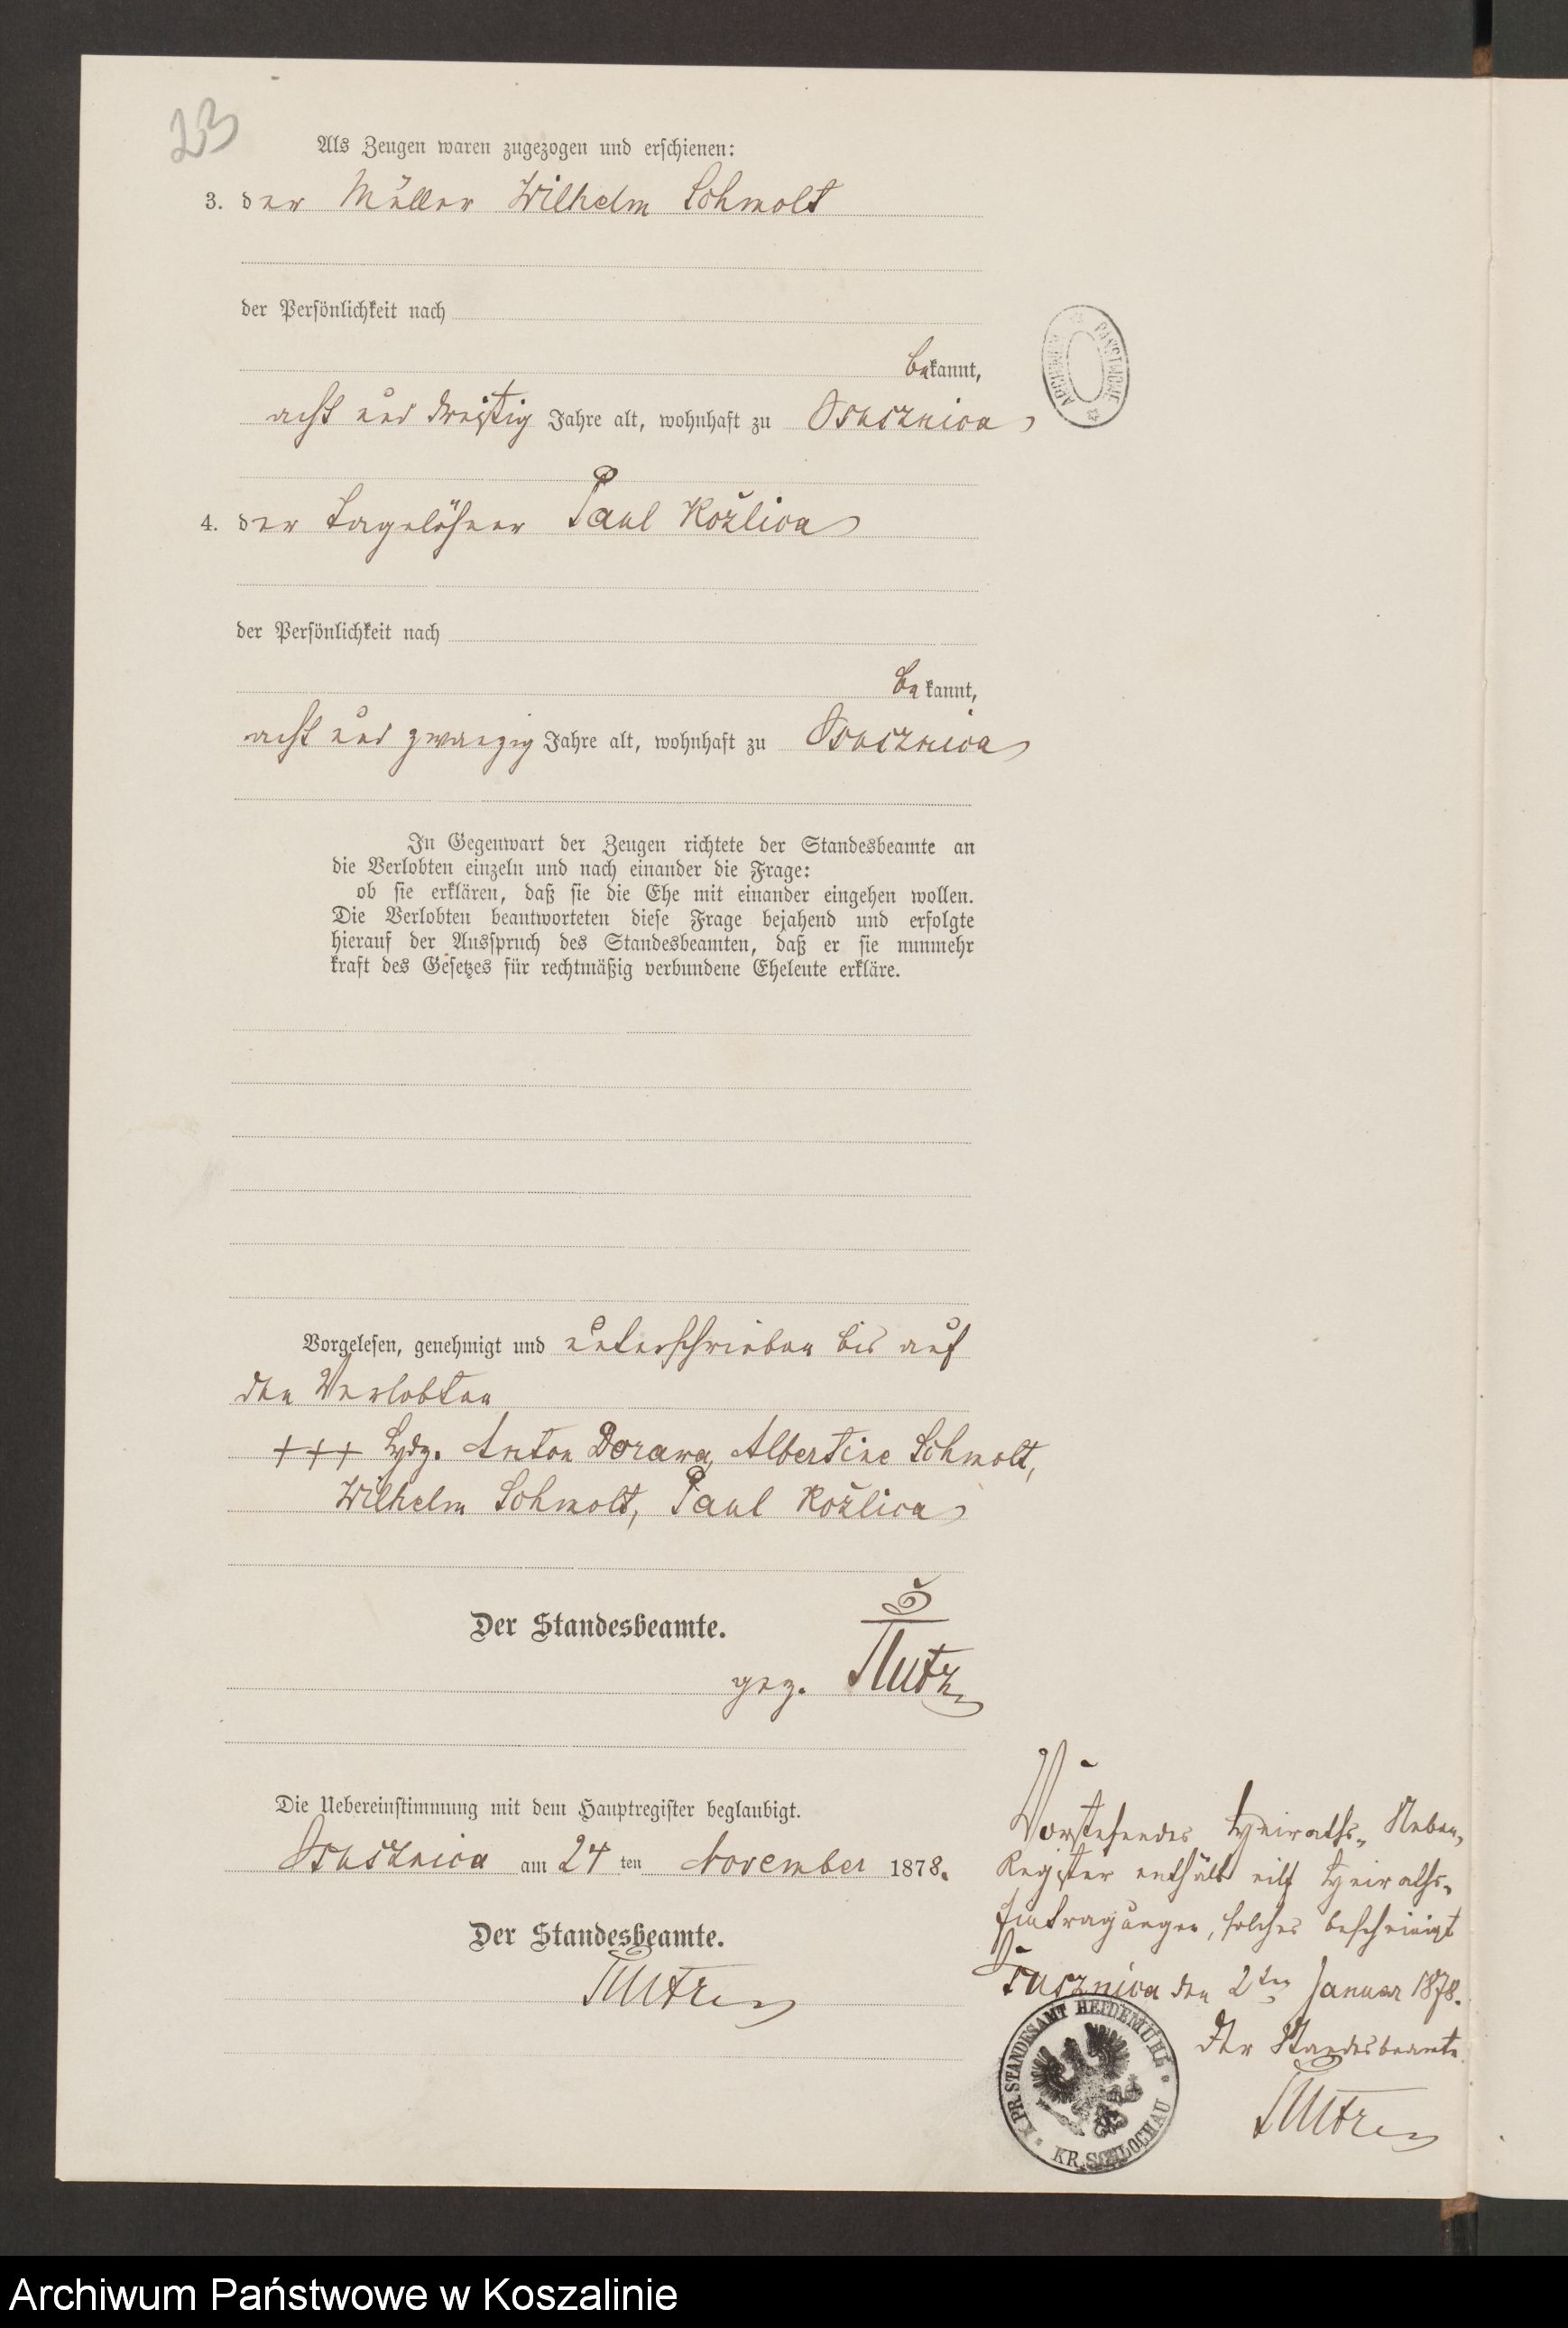 23
Als Zeugen waren zugezogen und erschienen:
3. der Müller Wilhelm Schmolt
der Persönlichkeit nach
bekannt,
acht und dreißig Jahre alt, wohnhaft zu Osusznica
4. der Tagelöhner Paul Kožlica
der Persönlichkeit nach
bekannt,
acht und zwanzig Jahre alt, wohnhaft zu Osusznica
In Gegenwart der Zeugen richtete der Standesbeamte an
die Verlobten einzeln und nach einander die Frage:
ob sie erklären, daß sie die Ehe mit einander eingehen wollen.
Die Verlobten beantworteten diese Frage bejahend und erfolgte
hierauf der Ausspruch des Standesbeamten, daß er sie nunmehr
kraft des Gesetzes für rechtmäßig verbundene Eheleute erkläre.
Vorgelesen, genehmigt und unterschrieben bis auf
den Verlobten
+++ Hdz. Anton Dorawa, Albertine Schmolt,
Wilhelm Schmolt, Paul Kožlica
Der Standesbeamte.
gez.
Die Uebereinstimmung mit dem Hauptregister beglaubigt.
Osusznica am 24 ten November 1878.
Der Standesbeamte.
Vorstehendes Heiraths-Neben-
Register enthält eilf Heiraths-
Eintragungen, solches bescheinigt
Osusznica den 2ten Januar 1878.
Der Standesbeamte
K. PR. STANDESAMT HEIDEMÜHL
KR. SCHLOCHAU
ARCHIWUM PAŃSTWOWE
Archiwum Państwowe w Koszalinie